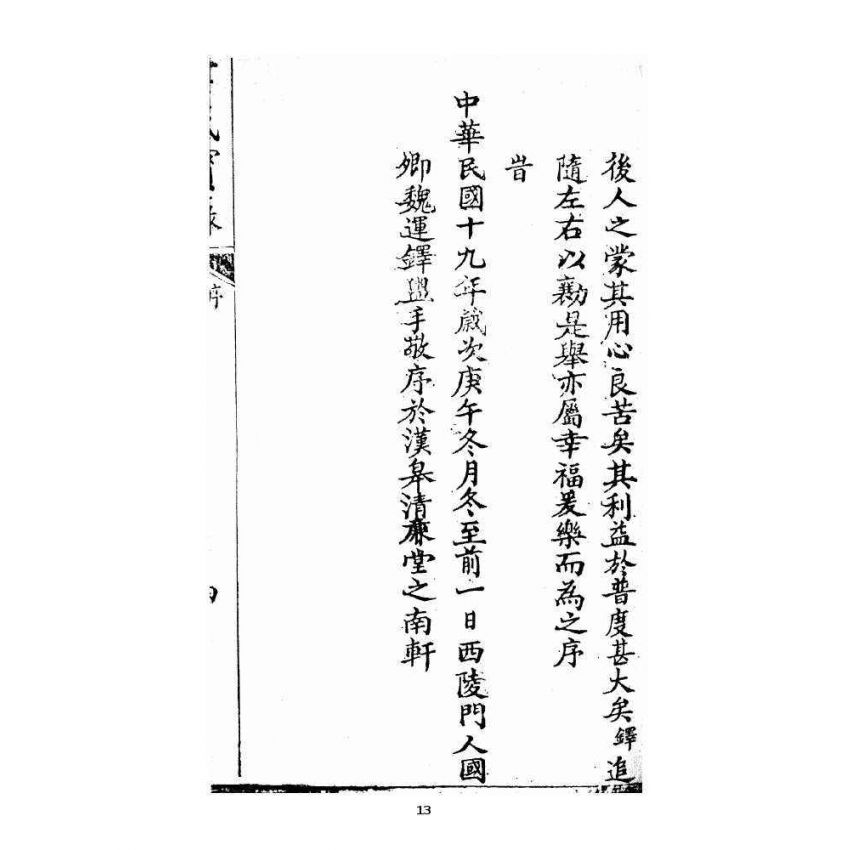 後人之蒙其用心良苦矣其利益於普度甚大矣鐸追
隨左右以勷是舉亦屬幸福爰樂而為之序
旹
中華民國十九年歲次庚午冬月冬至前一日西陵門人國
卿魏運鐸盥手敬序於漢皋清康堂之南軒
序
四
13